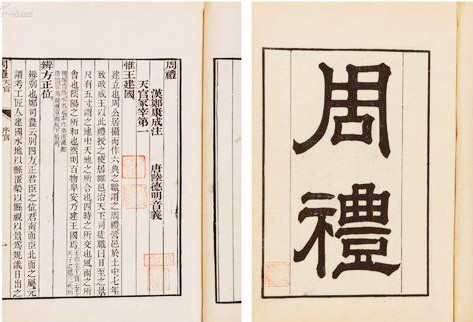 周禮
周禮
漢鄭康成注 唐陸德明音義
天官冢宰第一
惟王建國
建立也周公居攝而作六典之職謂之周禮營邑於土中七年
致政成王以此禮授之使居雒邑治天下司徒職曰日至之景
尺有五寸謂之地中天地之所合也四時之所交也風雨之所
會也陰陽之所和也然則百物阜安乃建王國焉
辨方正位
辨別也鄭司農云別四方正君臣之位君南面臣北面之屬玄
謂考工匠人建國水地以縣置槷以縣視以景為規識日出之
周禮 天官 序官 一